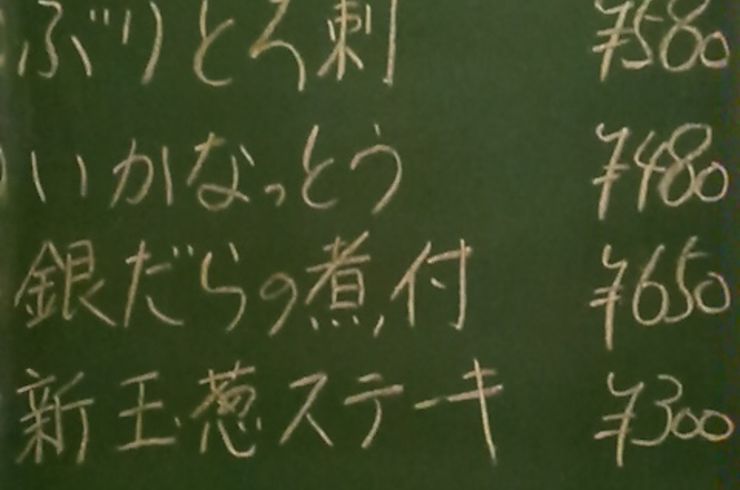 ぶりとろ刺 ¥580
いかなっとう ¥480
銀だらの煮付 ¥650
新玉葱ステーキ ¥300